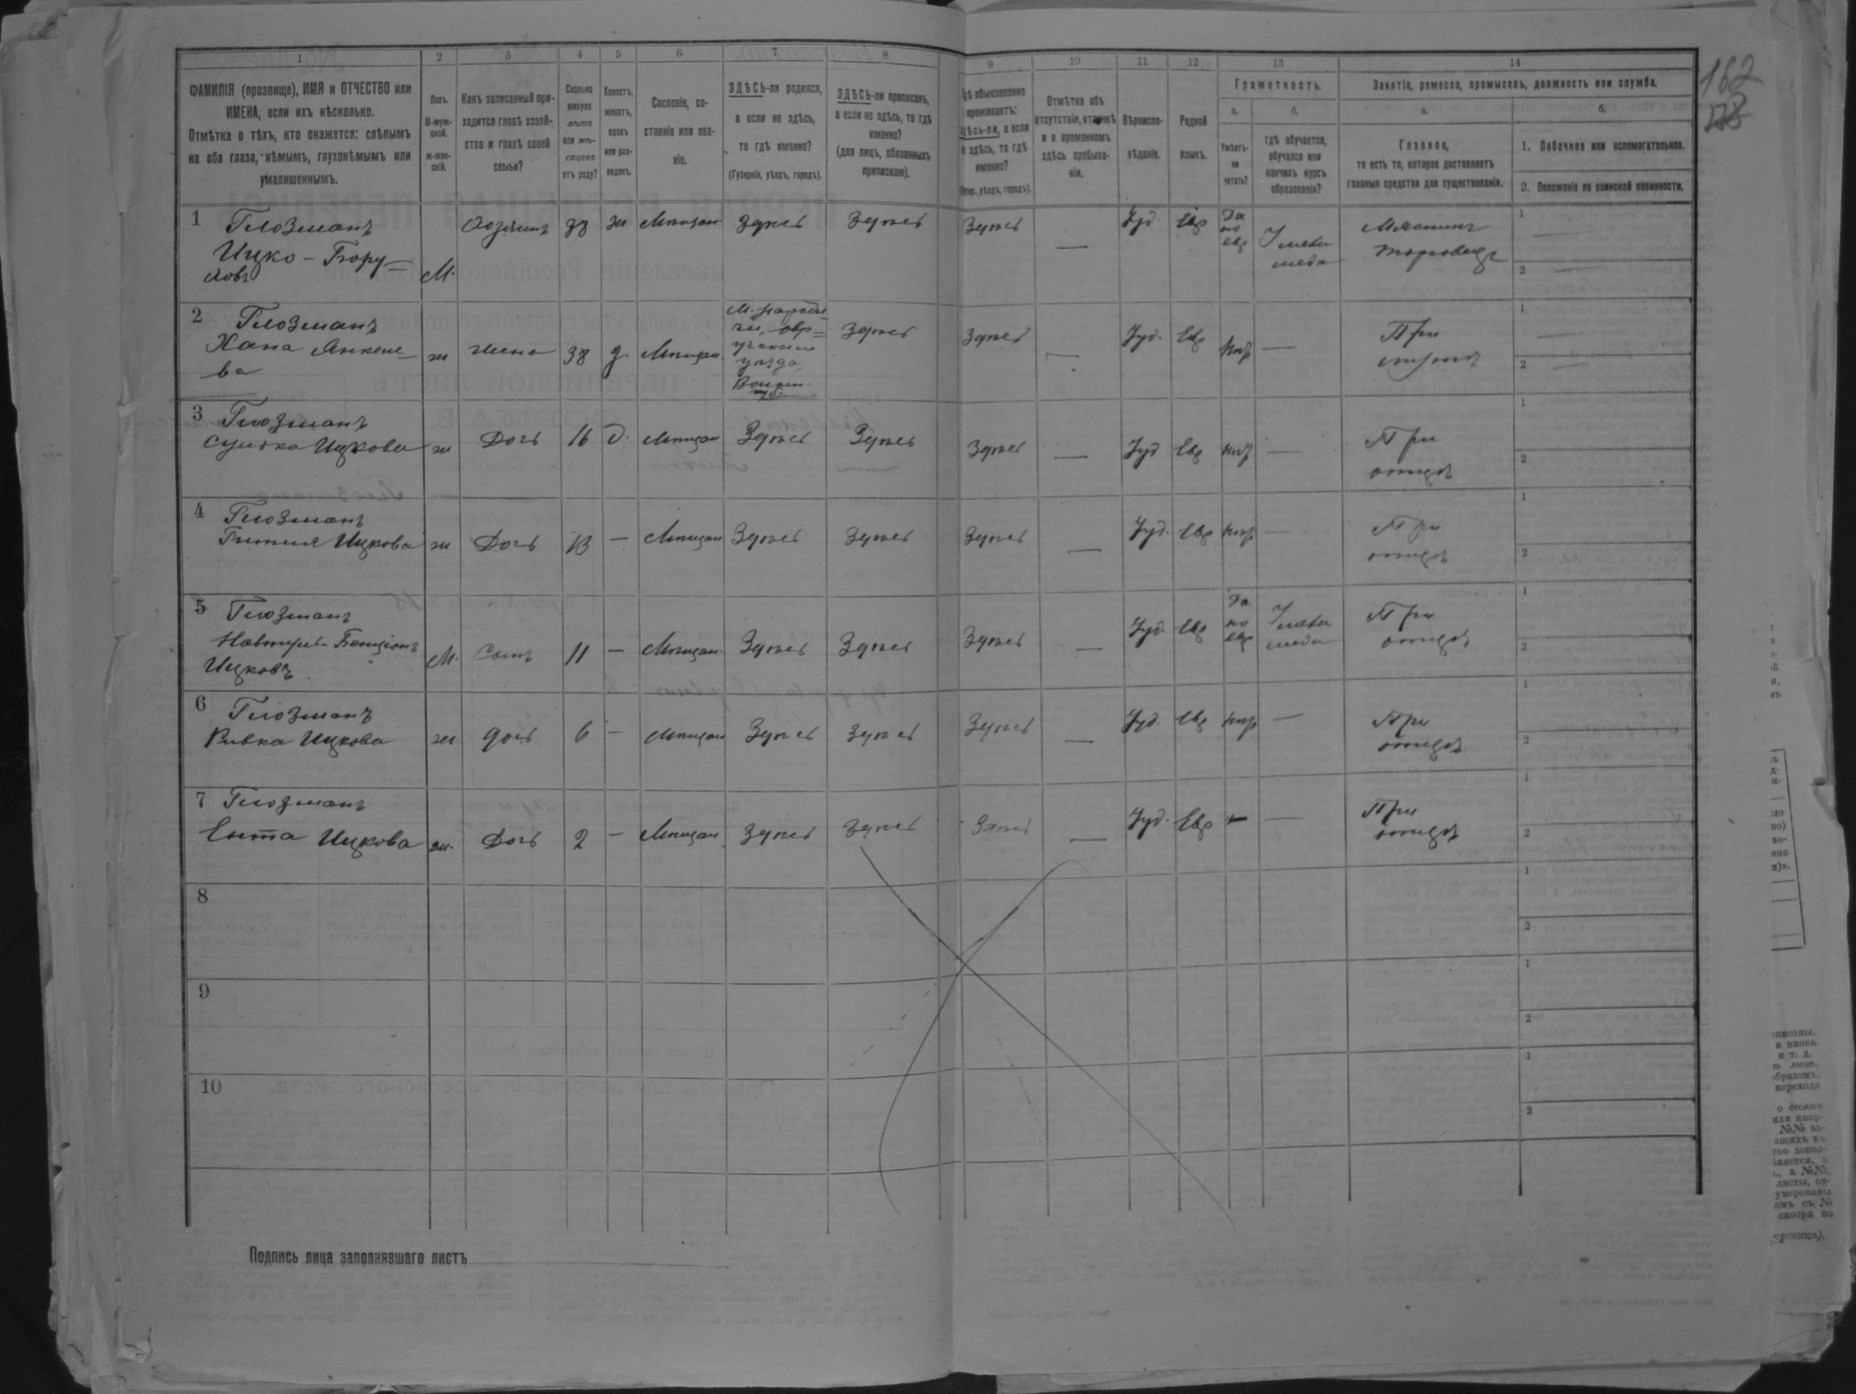 1 2 3 4 5 6 7 8 9 10 11 12 13 14
162
ФАМИЛІЯ (прозвище), ИМЯ и ОТЧЕСТВО или
ИМЕНА, если ихъ нѣсколько.
Отмѣтка о тѣхъ, кто окажется: слѣпымъ
на оба глаза, нѣмымъ, глухонѣмымъ или
умалишеннымъ.
Полъ.
М-муж-
ской.
ж-жен-
скій.
Какъ записанный при-
ходится главѣ хозяй-
ства и главѣ своей
семьи?
Сколько
минуло
лѣтъ
или мѣ-
сяцевъ
отъ роду?
Холостъ,
женатъ,
вдовъ
или раз-
веденъ.
Сословіе, со-
стояніе или зва-
ніе.
ЗДѢСЬ-ли родился,
а если не здѣсь,
то гдѣ именно?
(Губернія, уѣздъ, городъ).
ЗДѢСЬ-ли приписанъ,
а если не здѣсь, то гдѣ
именно?
(для лицъ, обязанныхъ
припискою).
Гдѣ обыкновенно
проживаетъ:
здѣсь-ли, а если
не здѣсь, то гдѣ
именно?
(Губер., уѣздъ, городъ).
Отмѣтка объ
отсутствіи, отлучкѣ
и о временномъ
здѣсь пребыва-
ніи.
Вѣроиспо-
вѣданіе.
Родной
языкъ.
Грамотность.
а.
Умѣетъ-
ли
читать?
б.
гдѣ обучается,
обучался или
кончилъ курсъ
образованія?
Занятіе, ремесло, промыселъ, должность или служба.
а.
Главное,
то есть то, которое доставляетъ
главныя средства для существованія.
б.
1. Побочное или вспомогательное.
2. Положеніе по воинской повинности.
1 Глозманъ
Ицко - Бору=
ховъ
М. Хозяинъ 38 ж Мѣщан Здѣсь Здѣсь Здѣсь — Іуд. Евр Да
по
евр
У мела
меда
торговецъ
2 Глозманъ
Хана Янкеле=
ва
ж жена 38 ж. Мѣщан. Здѣсь Здѣсь — Іуд. Евр нѣт —
При
уѣзда
3 Глозманъ
Ицкова ж Дочь 16 д. Мѣщан Здѣсь Здѣсь Здѣсь — Іуд Евр нѣт —
При
отцѣ
4 Глозманъ
Ицкова ж Дочь 13 — Мѣщан Здѣсь Здѣсь Здѣсь — Іуд. Евр нѣт —
При
отцѣ
5 Глозманъ
Ицковъ
М. Сынъ 11 — Мѣщан Здѣсь Здѣсь Здѣсь — Іуд. Евр Да
по
евр
При
отцѣ
6 Глозманъ
Ривка Ицкова ж дочь 6 — Мѣщан Здѣсь Здѣсь Здѣсь — Іуд. Евр нѣт —
При
отцѣ
7 Глозманъ
Ента Ицкова ж. Дочь 2 — Мѣщан Здѣсь Здѣсь Здѣсь — Іуд. Евр — —
При
отцѣ
8
9
10
Подпись лица заполнявшаго листъ